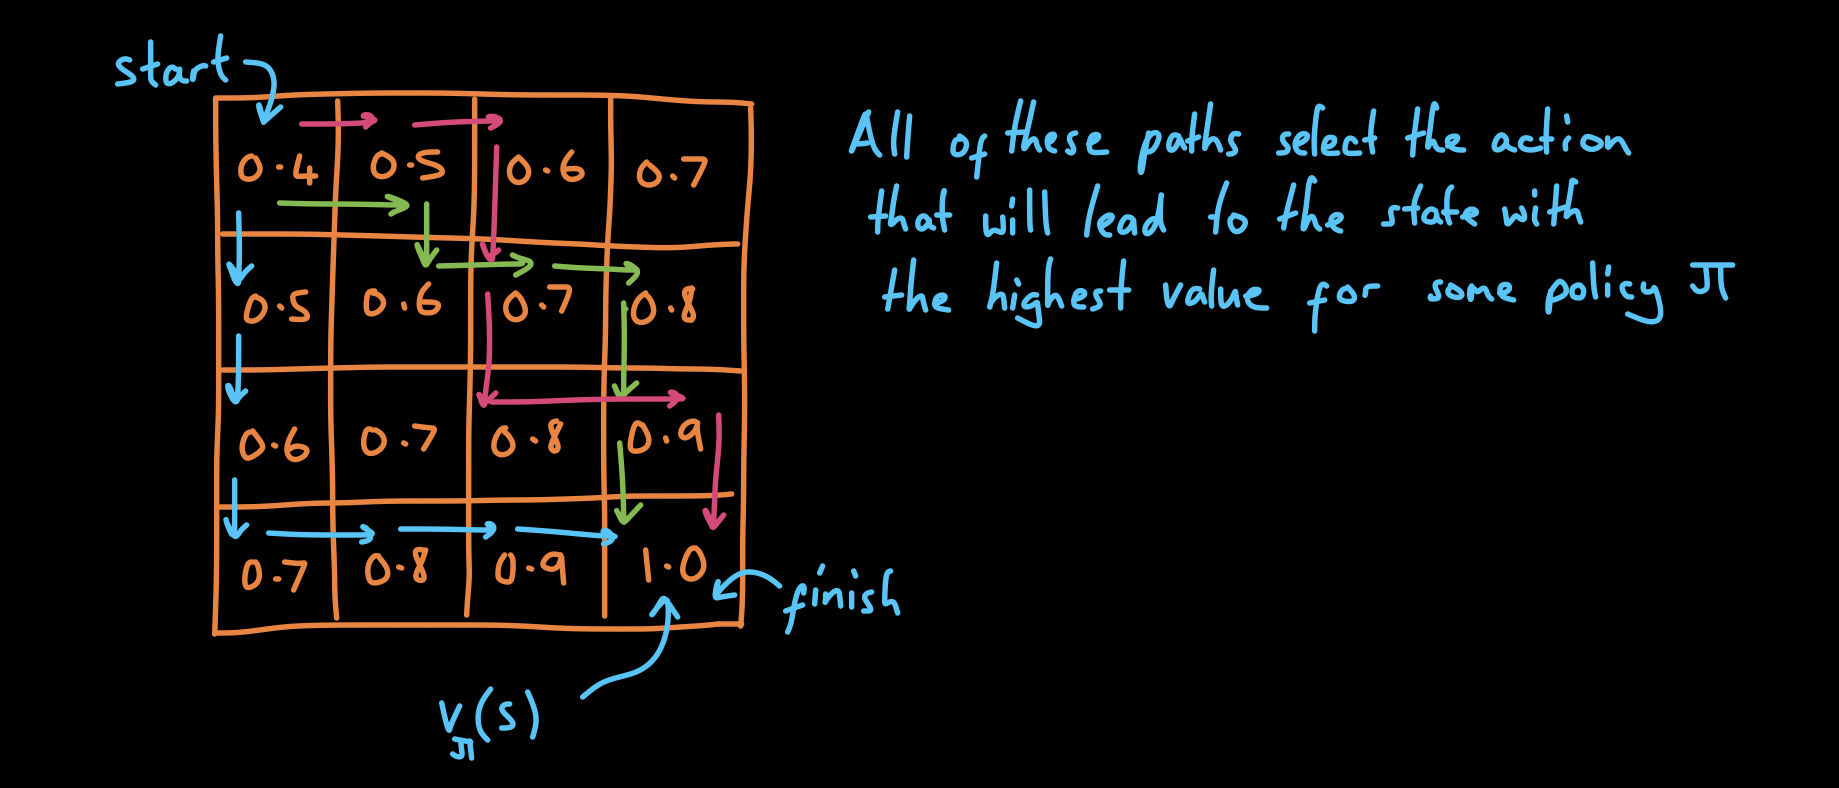 start
0.4 0.5 0.6 0.7
0.5 0.6 0.7 0.8
0.6 0.7 0.8 0.9
0.7 0.8 0.9 1.0
finish
Vπ(s)
All of these paths select the action
that will lead to the state with
the highest value for some policy π